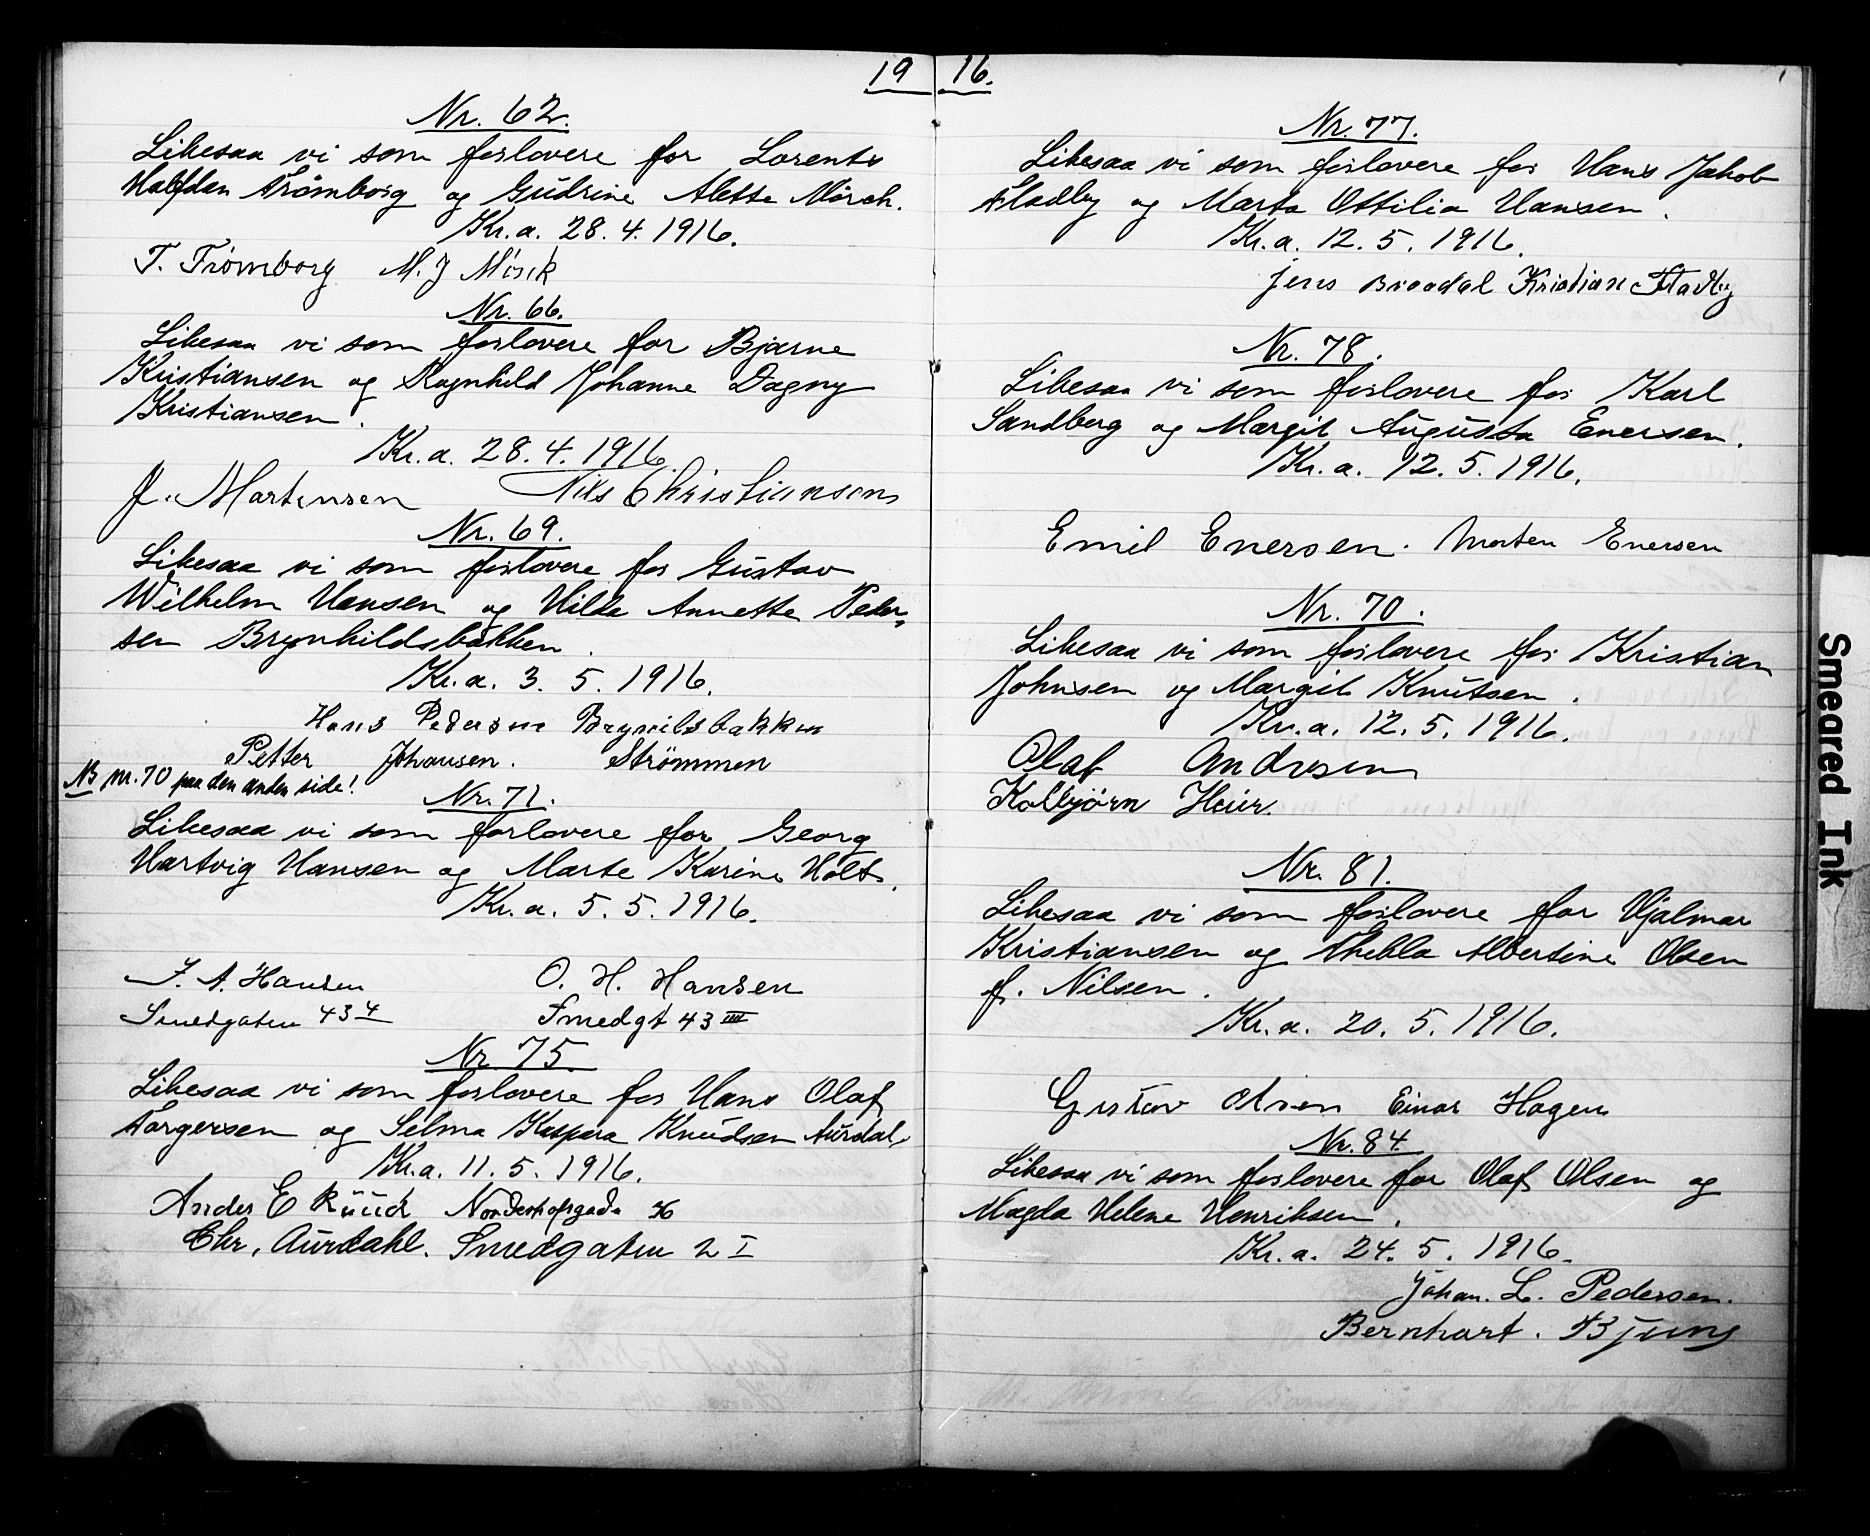 19 16.
Nr. 62.
Likesaa vi som forlovere for Lorents
Halfdan Trömborg og Gudrine Alette Mörch.
Kr.a. 28. 4. 1916.
T. Trömborg M. J Mörck
Nr. 66.
Likesaa vi som forlovere for Bjarne
Kristiansen og Ragnhild Johanne Dagny
Kristiansen.
Kr.a. 28. 4. 1916.
J. Martinsen Nils Christiansen
Nr. 69.
Likesaa vi som forlovere for Gustav
Wilhelm Hansen og Hilda Annette Peder-
sen Brynhildsbakken.
Kr.a. 3. 5. 1916.
Hans Pedersen Brynilsbakken
Petter Johansen. Strömmen
NB nr. 70 paa den anden side!
Nr. 71.
Likesaa vi som forlovere for Georg
Hartvig Hansen og Marte Karine Holt.
Kr.a. 5. 5. 1916.
J. A. Hansen O. H. Hansen
Smedgaten 43 4 Smedgt 43 IIII
Nr. 75.
Likesaa vi som forlovere for Hans Olaf
Torgersen og Selma Kaspara Knudsen Aurdal.
Kr.a. 11. 5. 1916.
Ander E Ruud Norderhofsgade 26
Chr. Aurdahl. Smedgaten 2 I
Nr. 77.
Likesaa vi som forlovere for Hans Jakob
Fladby og Marta Ottilia Hansen.
Kr.a. 12. 5. 1916.
Jens Kristian Fladby
Nr. 78.
Likesaa vi som forlovere for Karl
Sandberg og Margit Augusta Enersen.
Kr.a. 12. 5. 1916.
Emil Enersen. Morten Enersen
Nr. 70.
Likesaa vi som forlovere for Kristian
Johnsen og Margit Knutsen.
Kr.a. 12. 5. 1916.
Olaf Andresen
Kolbjörn Heier.
Nr. 81.
Likesaa vi som forlovere for Hjalmar
Kristiansen og Thekla Albertine Olsen
f. Nilsen.
Kr.a. 20. 5. 1916.
Gustav Olsen Einar Hagen
Nr. 84.
Likesaa vi som forlovere for Olaf Olsen og
Magda Helene Henriksen.
Kr.a. 24. 5. 1916.
Johan. L. Pedersen.
Bernhart. Bjung
Smeared Ink